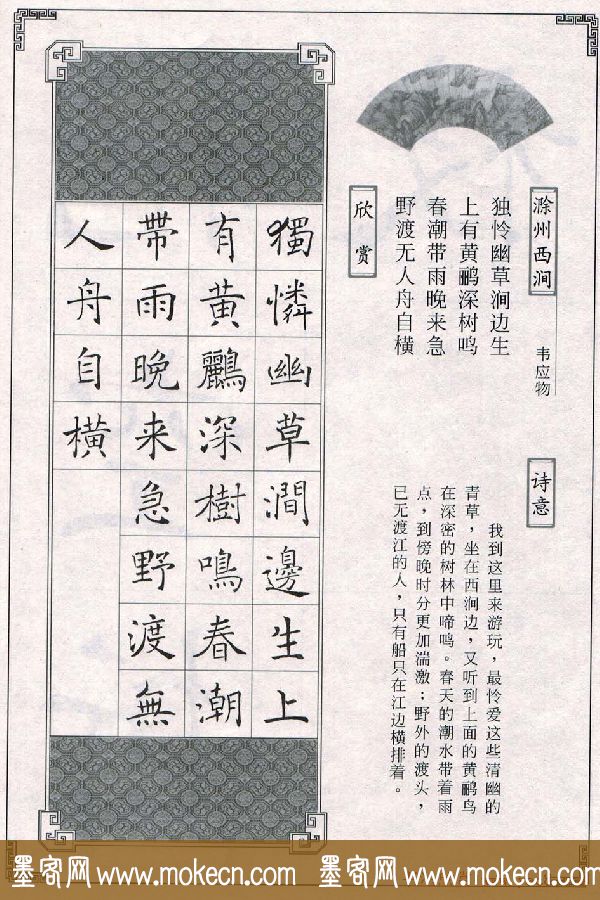 滁州西涧
韦应物
独怜幽草涧边生
上有黄鹂深树鸣
春潮带雨晚来急
野渡无人舟自横
诗意
我到这里来游玩，最怜爱这些清幽的
青草，坐在西涧边，又听到上面的黄鹂鸟
在深密的树林中啼鸣。春天的潮水带着雨
点，到傍晚时分更加湍激；野外的渡头，
已无渡江的人，只有船只在江边横排着。
欣赏
獨憐幽草澗邊生上
有黃鸝深樹鳴春潮
帶雨晚来急野渡無
人舟自橫
墨客网 www.mokecn.com 墨客网 www.mokecn.com